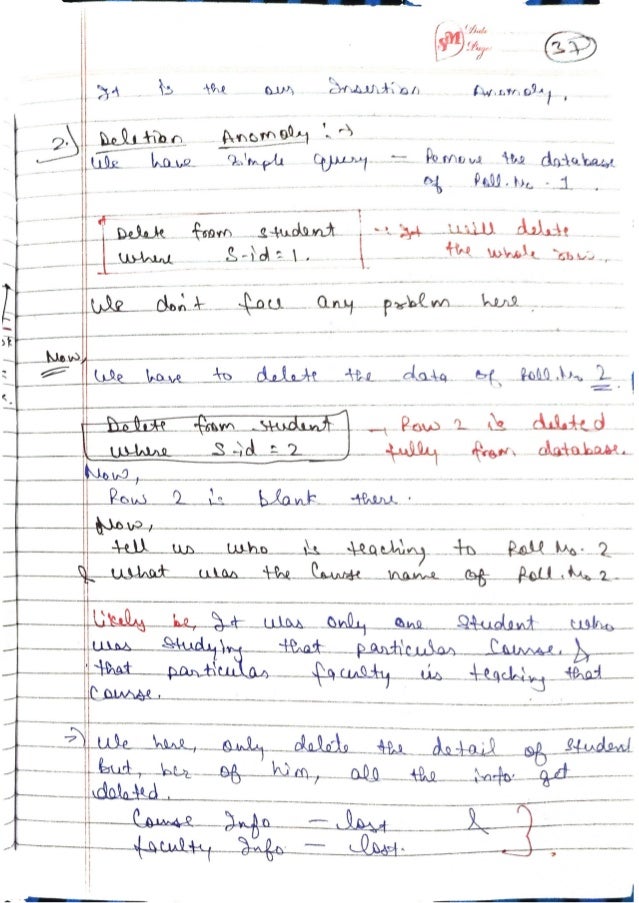 Date
Page
37
It is the our Insertion Anomoly.
2.) Deletion Anomoly :->
We have simple query - Remove the database
of Roll. No. 1.
Delete from student
where S-id = 1.
∵ It will delete
the whole row.
We don't face any problm here.
Now,
We have to delete the data of Roll. No 2.
Delete from student
where S-id = 2
→ Row 2 is deleted
fully from database.
Now,
Row 2 is blank there.
Now,
tell us who is teaching to Roll No. 2
& what was the Course name of Roll. No 2.
Likely be, It was only one student who
was studying that particular Course. &
that particular faculty is teaching that
course.
=> We here, only delete the detail of student
but, bcz of him, all the info get
deleted.
Course Info - lost &
faculty Info - lost.